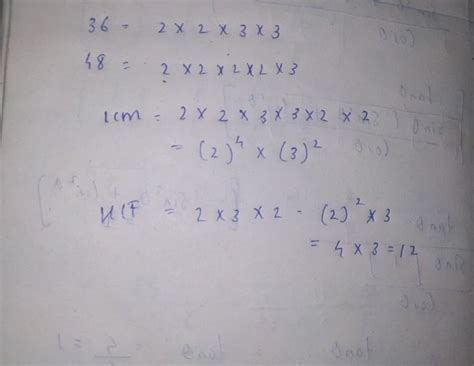 36 = 2 × 2 × 3 × 3
48 = 2 × 2 × 2 × 2 × 3
lcm = 2 × 2 × 3 × 3 × 2 × 2
= (2)^4 × (3)^2
HCF = 2 × 3 × 2 - (2)^2 × 3
= 4 × 3 = 12